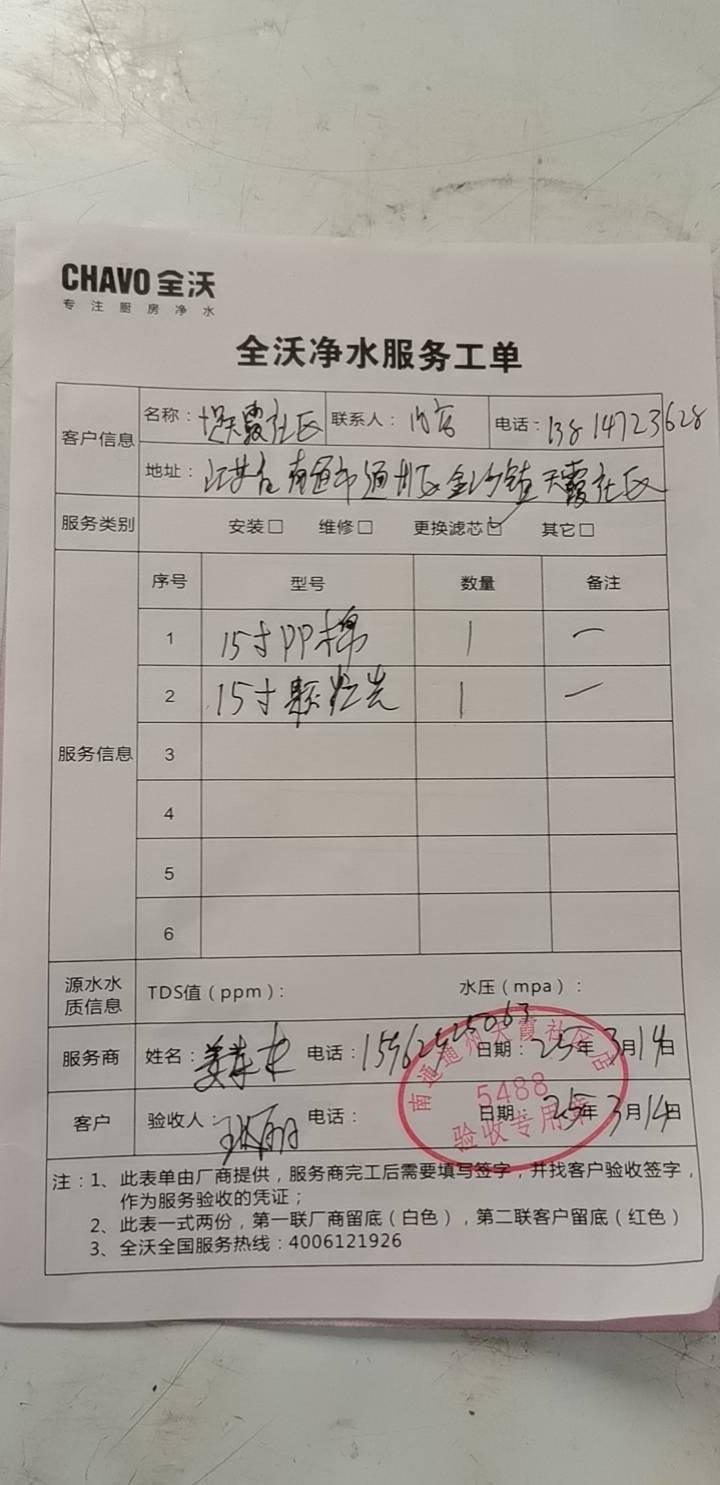 CHAVO 全沃
专注厨房净水
全沃净水服务工单
客户信息 名称: 天霞社区 联系人: 电话: 13814723628
地址: 江苏省南通市通州区金沙镇天霞社区
服务类别 安装□ 维修□ 更换滤芯☑ 其它□
服务信息 序号 型号 数量 备注
1 15寸PP棉 1 一
2 15寸颗粒炭 1 一
3
4
5
6
源水水质信息 TDS值(ppm): 水压(mpa):
服务商 姓名: 电话: 15962425063 日期: 25年3月14日
客户 验收人: 电话: 日期: 25年3月14日
南通通州天霞社区店
5488
验收专用章
注:1、此表单由厂商提供,服务商完工后需要填写签字,并找客户验收签字,
作为服务验收的凭证;
2、此表一式两份,第一联厂商留底(白色),第二联客户留底(红色)
3、全沃全国服务热线:4006121926